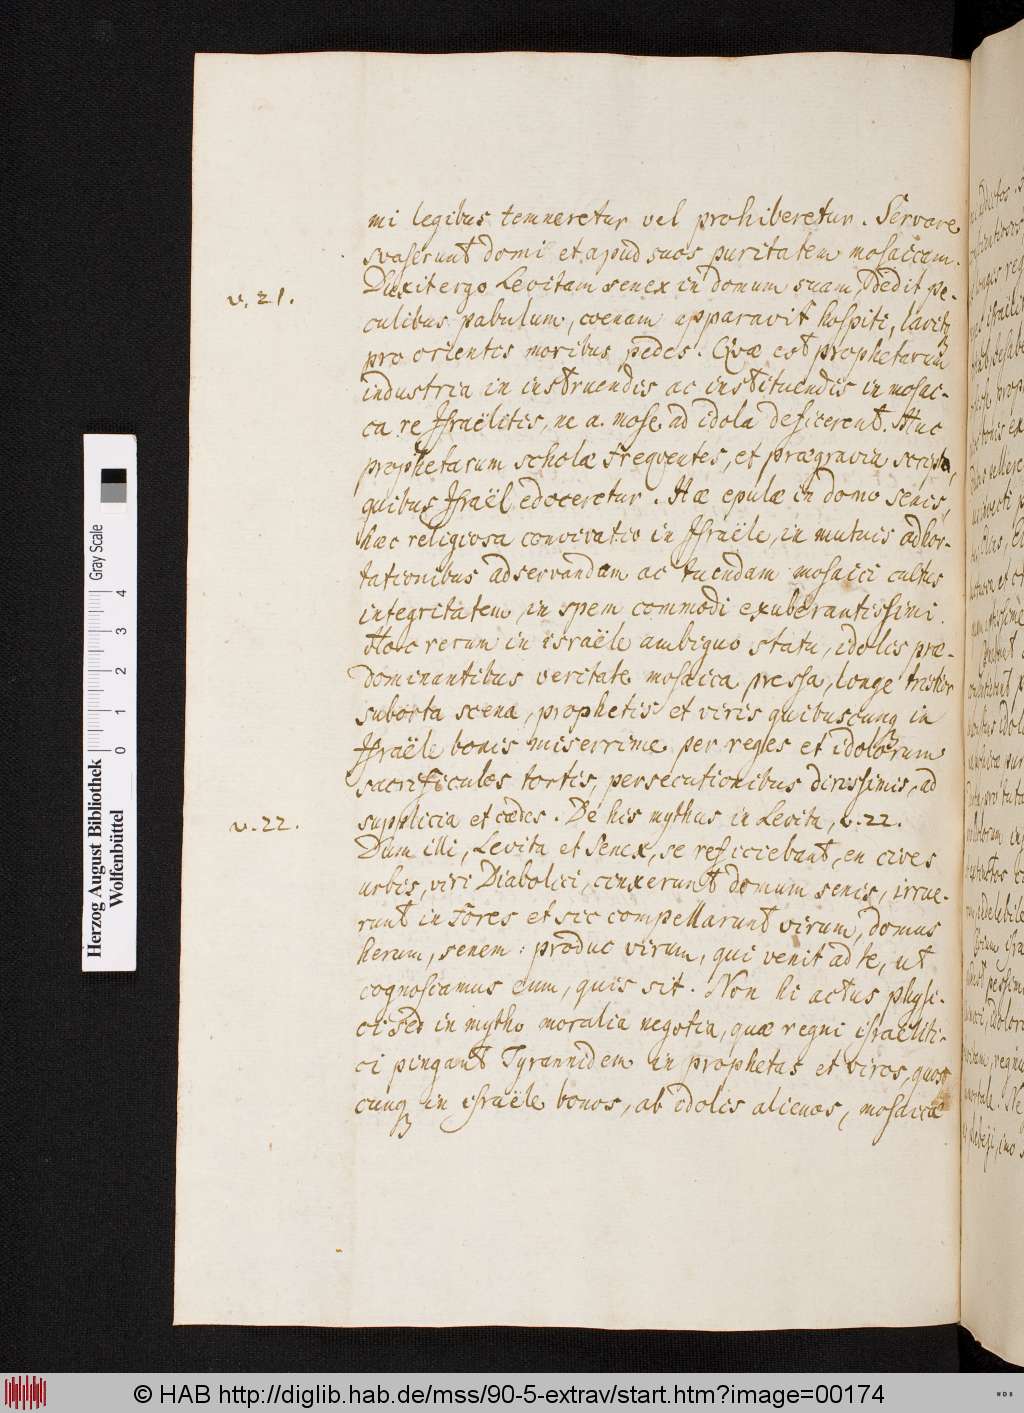 mi legibus temneretur vel prohiberetur. Servare
svaserunt domi et apud suos puritatem mosaicam.
v. 21.
Duxit ergo Levitam senex in domum suam, dedit pe-
culibus pabulum, coenam apparavit hospiti, lavitq
pro orientis moribus pedes. Qvæ est prophetarum
industria in instruendis ac instituendis in mosac-
ca re Israëlitis, ne a mose ad idola deficerent. Huc
prophetarum scholæ freqventes, et prægravia scripta,
quibus Israël edoceretur. Hæ epulæ in domo senis,
hæc religiosa convivatio in Israële, in mutuis adhor-
tationibus adservandam ac tuendam mosaici cultus
integritatem, in spem commodi exuberantissimi.
Hoc rerum in israële ambiguo statu, idolis præ-
dominantibus veritate mosaica pressa, longe tristior
suborta scena, prophetis et viris quibuscunq in
Israële bonis miserrime per reges et idolorum
sacrificulos tortis, persecutionibus dirissimis, ad
supplicia et cædes. De his mythus in Levita, v. 22.
v. 22.
Dum illi, Levita et Senex, se reficiebant, en cives
urbis, viri Diabolici, cinxerunt domum senis, irrue-
runt in fores et sic compellarunt virum, domus
herum, senem: produc virum, qui venit ad te, ut
cognosiamus eum, quis sit. Non hi actus physi-
ci sed in mytho moralia negotia, quæ regni israeliti-
ci pingant Tyrannidem in prophetas et viros, quos
cunq in israële bonos, ab idolis alienos, mosaicæ
Herzog August Bibliothek
Wolfenbüttel
Gray Scale
0 1 2 3 4
© HAB http://diglib.hab.de/mss/90-5-extrav/start.htm?image=00174